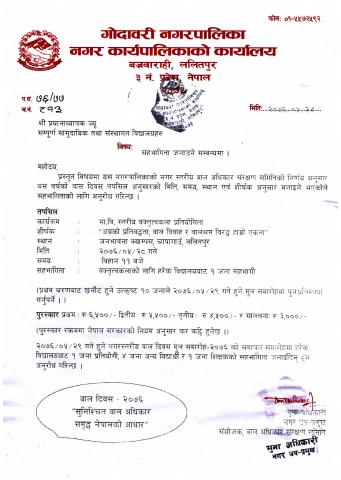 फोनः ०१-५५७२५९२
गोदावरी नगरपालिका
नगर कार्यपालिकाको कार्यालय
बज्रवाराही, ललितपुर
३ नं. प्रदेश, नेपाल
प.सं. ७६/७७
च.नं. ८९३
मितिः २०७६/०५/२८
श्री प्रधानाध्यापक ज्यू
सम्पूर्ण सामुदायिक तथा संस्थागत विद्यालयहरु
विषयः
सहभागिता जनाउने सम्बन्धमा ।
महोदय,
प्रस्तुत विषयमा यस नगरपालिकाको नगर स्तरीय बाल अधिकार संरक्षण समितिको निर्णय अनुसार
यस वर्षको बाल दिवस तपसिल अनुसारको मिति, समय, स्थान एवं शीर्षक अनुसार मनाइने भएकोले
सहभागिताको लागि अनुरोध गरिन्छ ।
तपसिल
कार्यक्रम : मा.वि. स्तरीय वक्तृत्वकला प्रतियोगिता
शीर्षक : "अबको प्रतिबद्धता, बाल विवाह र बालश्रम विरुद्ध हाम्रो एकता"
स्थान : जनभावना क्याम्पस, चापागाउँ, ललितपुर
मिति : २०७६/०५/२८ गते
समय : विहान ११ बजे
सहभागिता : वक्तृत्वकलाको लागि हरेक विद्यालयबाट १ जना सहभागी
(प्रथम चरणबाट छनौट हुने उत्कृष्ट १० जनाले २०७६/०५/२९ गते हुने मुल समारोहमा पुनःप्रतिस्पर्धा
गर्नुपर्ने ।)
पुरस्कार प्रथमः रु ६,५००/- द्वितीयः रु ५,५००/- तृतीयः रु ४,५००/- र सान्त्वनाः रु ३,०००/-
(पुरस्कार रकममा नेपाल सरकारको नियम अनुसार कर कट्टि हुनेछ ।)
२०७६/०५/२९ गते हुने नगरस्तरीय बाल दिवस मुल समारोह-२०७६ को समापन समारोहमा हरेक
विद्यालयबाट १ जना प्रतियोगी, ४ जना अन्य विद्यार्थी र १ जना शिक्षकको सहभागिता जनाईदिन हुन
अनुरोध गरिन्छ ।
बाल दिवस - २०७६
"सुनिश्चित बाल अधिकार
समृद्ध नेपालको आधार"
मुना अधिकारी
नगर उप-प्रमुख
संयोजक, बाल अधिकार संरक्षण समिति
मुना अधिकारी
नगर उप-प्रमुख